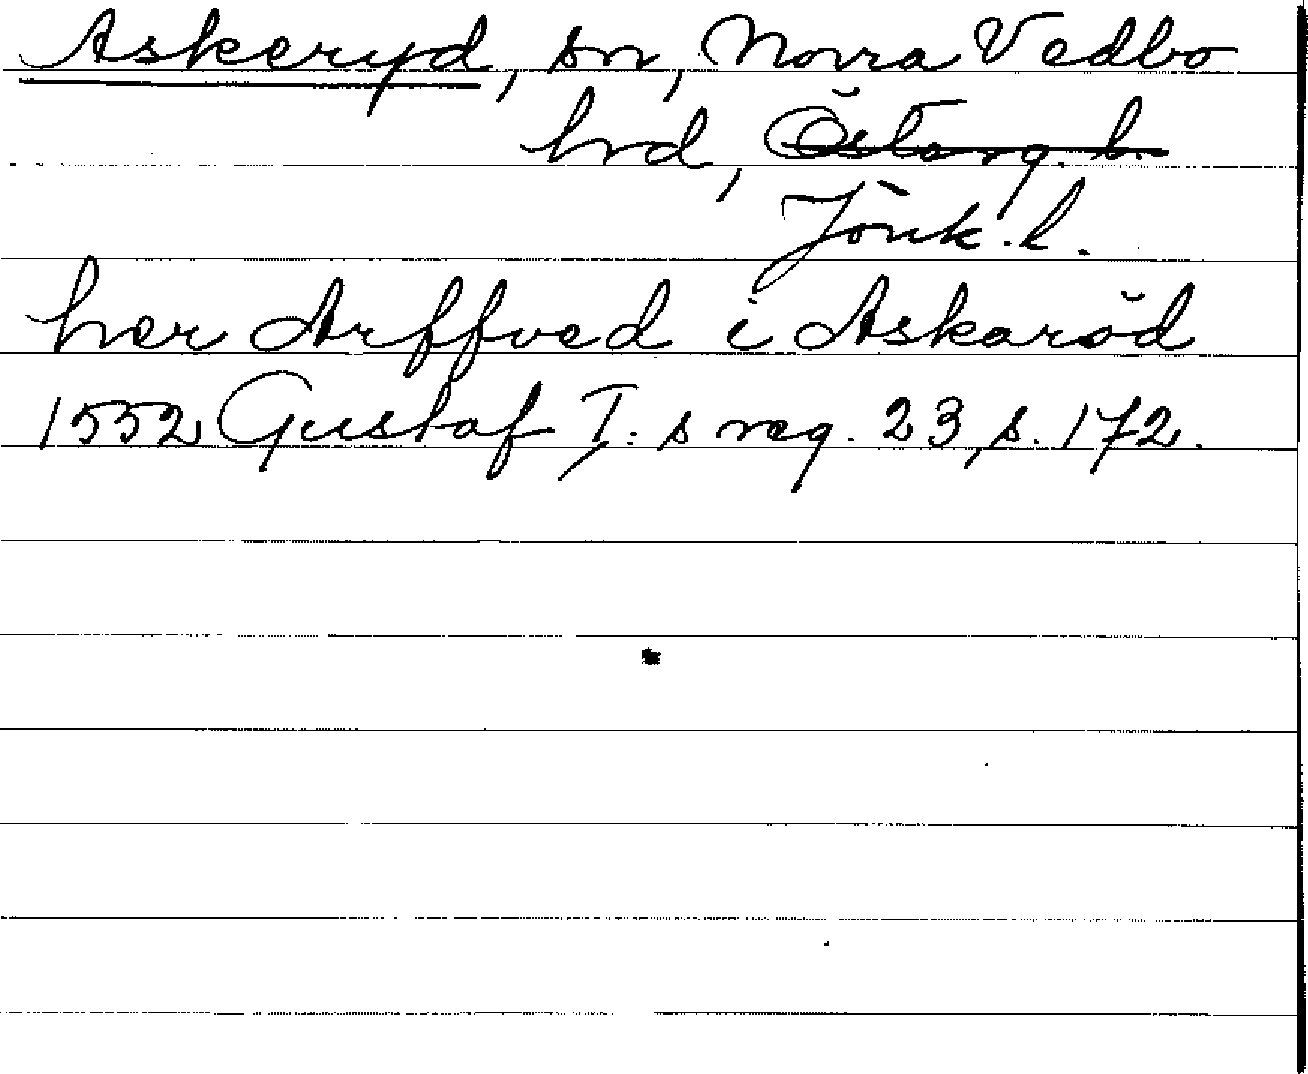 Askeryd, sn, Norra Vedbo
hrd, Österg. l.
Jönk. l.
her Arffved i Askaröd
1552 Gustaf I: s reg. 23, s. 172.